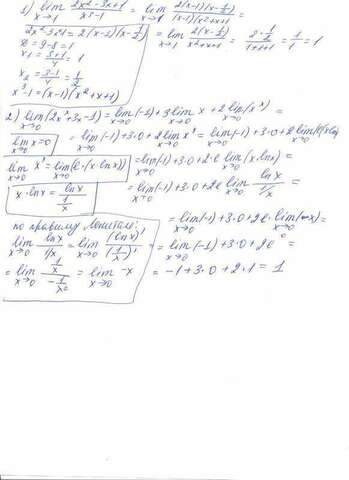 1) lim x→1 (2x²-3x+1)/(x³-1) = lim x→1 2(x-1)(x-1/2)/(x-1)(x²+x+1) =
2x²-3x+1 = 2(x-1)(x-1/2)
D = 9-8 = 1
x₁ = (3+1)/4 = 1
x₂ = (3-1)/4 = 1/2
x³-1 = (x-1)(x²+x+1)
= lim x→1 2(x-1/2)/(x²+x+1) = (2·1/2)/(1+1+1) = 1/1 = 1
2) lim x→0 (2xˣ+3x-1) = lim x→0 (-1)+3 lim x→0 x + 2 lim x→0 (xˣ) =
lim x→0 x = 0
= lim x→0 (-1)+3·0+2 lim x→0 xˣ = lim x→0 (-1)+3·0+2 lim x→0
lim x→0 xˣ = lim x→0 (e^(x·ln x))
= lim x→0 (-1)+3·0+2·e^(lim x→0 (x·ln x)) =
x·ln x = ln x/(1/x)
= lim x→0 (-1)+3·0+2e^(lim x→0 ln x/(1/x)) =
по правилу Лопиталя:
lim x→0 ln x/(1/x) = lim x→0 (ln x)'/(1/x)' =
= lim x→0 (1/x)/(-1/x²) = lim x→0 -x
= lim x→0 (-1)+3·0+2e^(lim x→0 (-x)) =
= lim x→0 (-1)+3·0+2e⁰ =
= -1+3·0+2·1 = 1